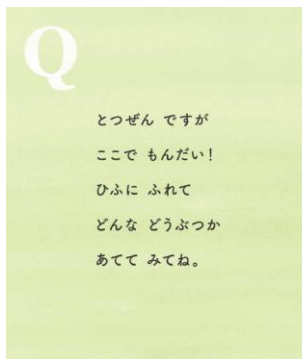 Q
とつぜん ですが
ここで もんだい!
ひふに ふれて
どんな どうぶつか
あてて みてね。